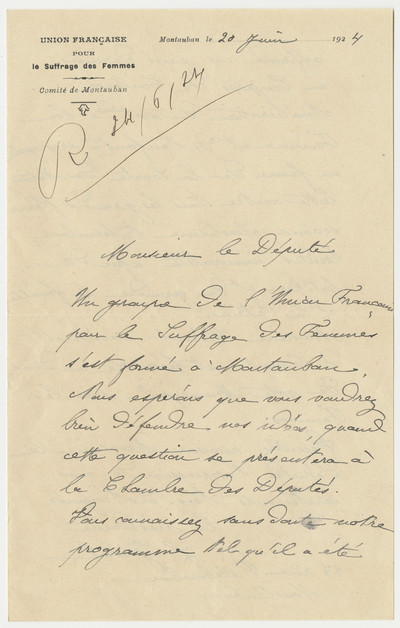 UNION FRANÇAISE
POUR
le Suffrage des Femmes
Comité de Montauban
Montauban le 20 Juin 1924
R 24/6/24
Monsieur le Député
Un groupe de l'Union Française
pour le Suffrage des Femmes
s'est formé à Montauban.
Nous espérons que vous voudrez
bien défendre nos idées, quand
cette question se présentera à
la Chambre des Députés.
Vous connaissez sans doute notre
programme tel qu'il a été